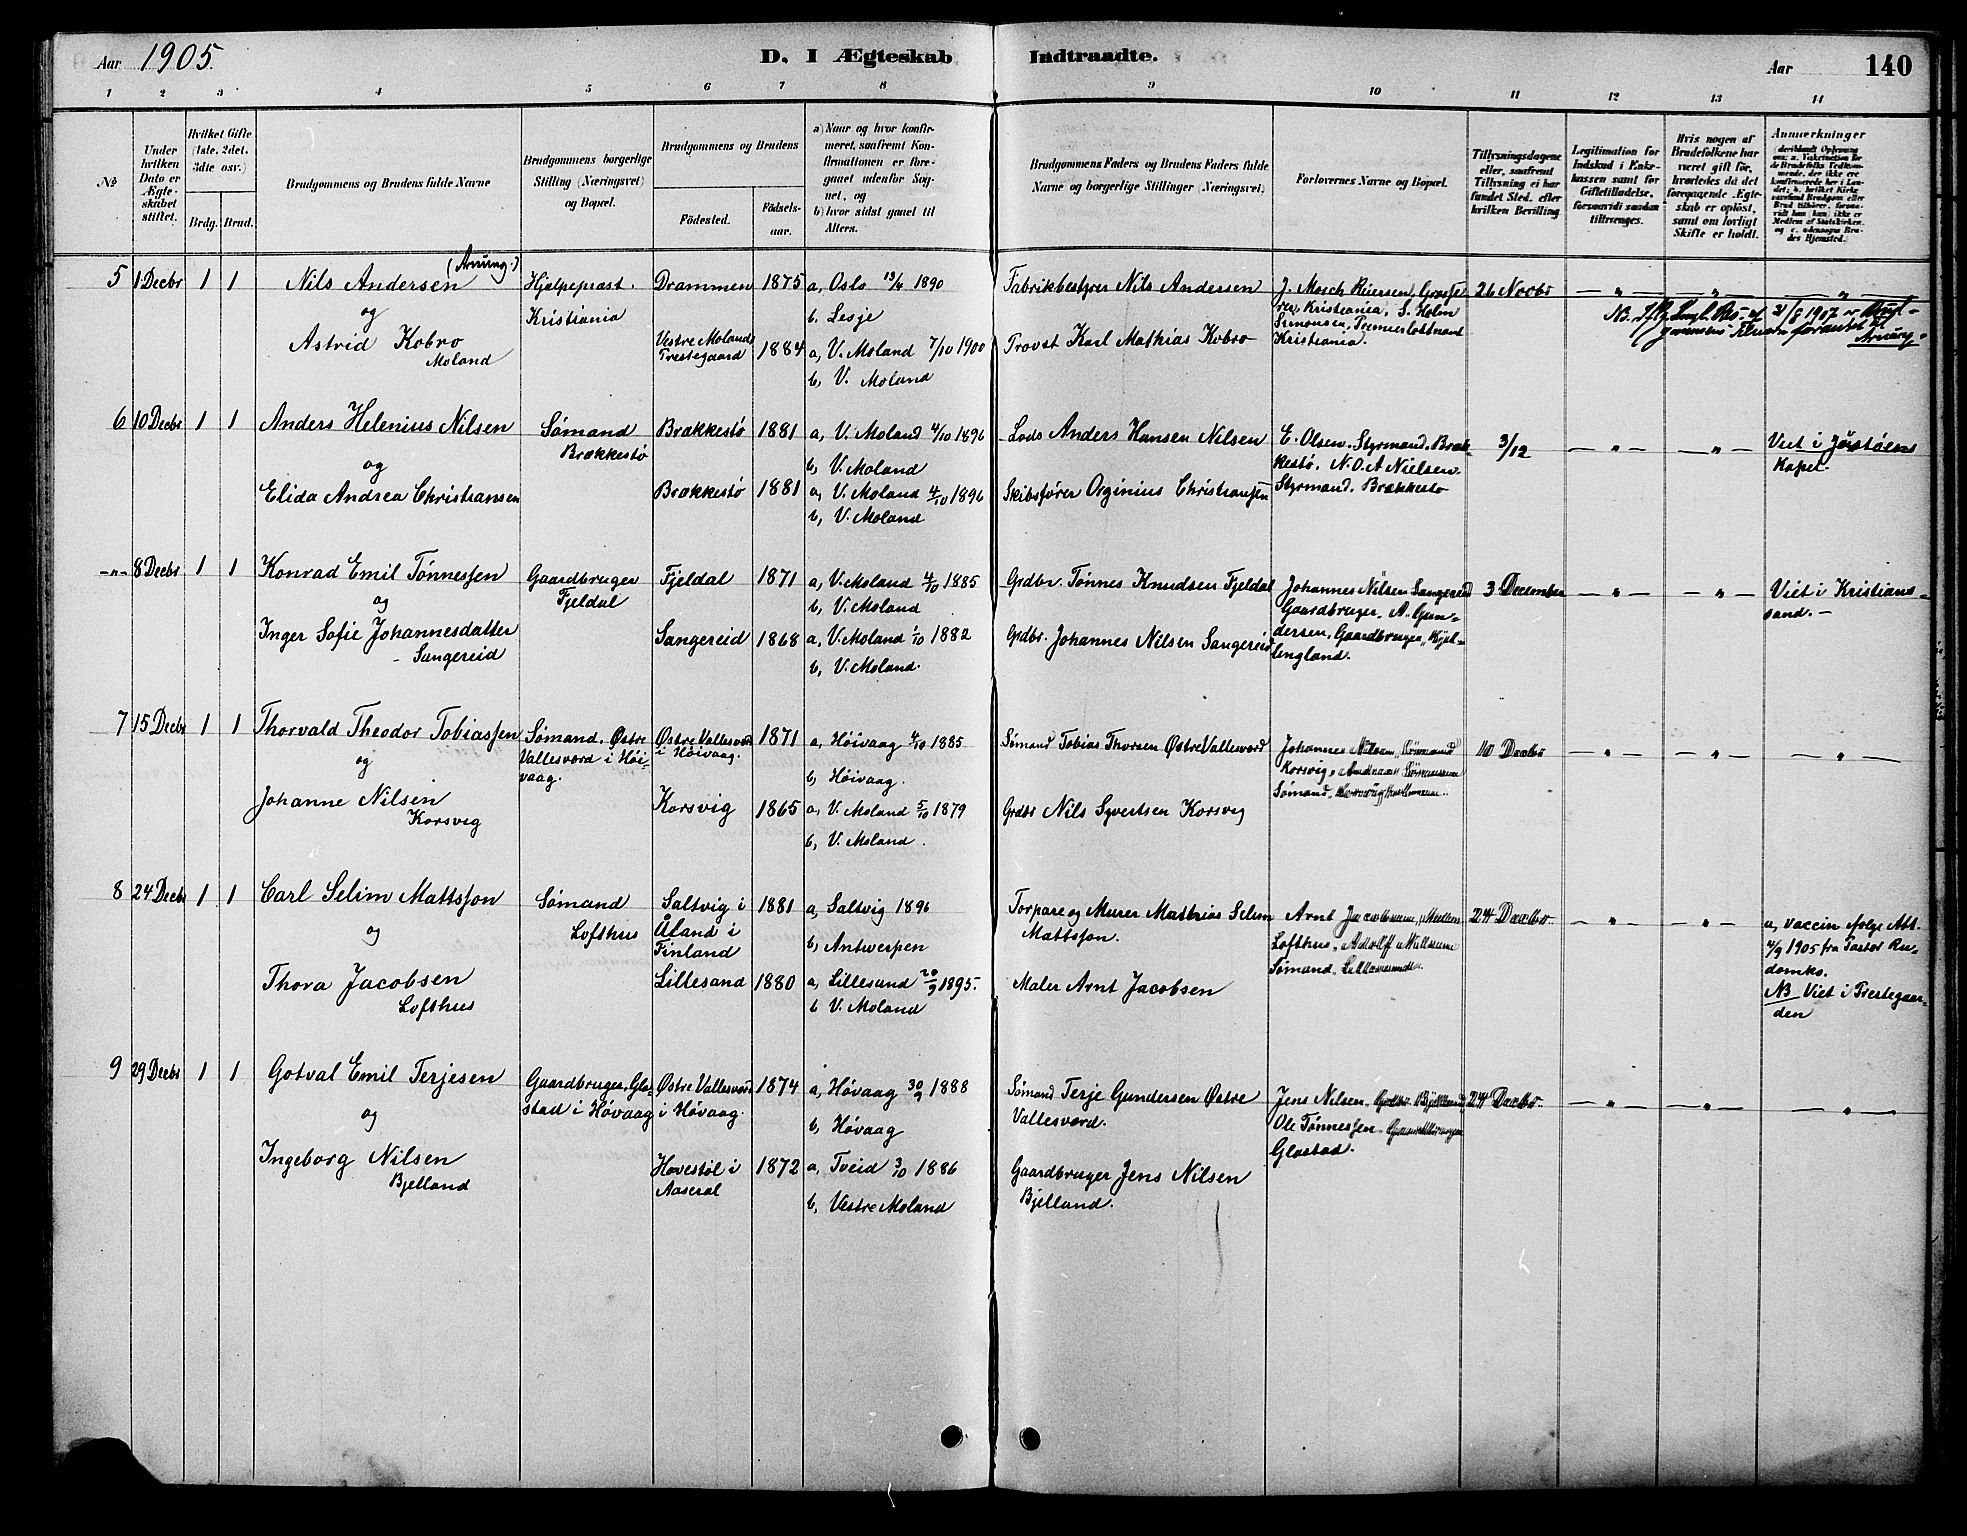 Aar 1905.
D. I Ægteskab Indtraadte.
Aar
140
1 2 3 4 5 6 7 8 9 10 11 12 13 14
No
Under hvilken Dato er Ægteskabet stiftet.
Hvilket Gifte (1ste, 2det, 3die osv.)
Brdg. Brud.
Brudgommens og Brudens fulde Navne
Brudgommens borgerlige Stilling (Næringsvei) og Bopæl.
Brudgommens og Brudens
Födested.
Födsels-aar.
a) Naar og hvor konfirmeret, saafremt Konfirmationen er foregaaet udenfor Sognet, og
b) hvor sidst gaaet til Alters.
Brudgommens Faders og Brudens Faders fulde Navne og borgerlige Stillinger (Næringsvei)
Forlovernes Navne og Bopæl.
Tillysningsdagene eller, saafremt Tillysning ei har fundet Sted, efter hvilken Bevilling.
Legitimation for Indskud i Enkekassen samt for Giftetilladelse, forsaavidt saadan tiltrænges.
Hvis nogen af Brudefolkene har været gift før, hvorledes da det foregaaende Ægteskab er oplöst, samt om lovligt Skifte er holdt.
Anmærkninger
5 1 Decbr 1 1 Nils Andersen (Arnung.)
og
Astrid Kobro
Moland
Hjælpeprest.
Kristiania
Drammen 1875 a, Oslo 13/4 1890
b. Lesje
Vestre Molands Prestegaard 1884 a, V. Moland 7/10 1900
b, V. Moland
Fabrikbestyrer Nils Andersen
Provst Karl Mathias Kobro
J. Mosch
Kristiania, S. Holm
Kristiania.
26 Novbr
NB. 1907
Arnung.
6 10 Decbr 1 1 Anders Helenius Nilsen
og
Elida Andrea Christiansen
Sømand
Brækkestø
Brækkestø 1881 a, V. Moland 4/10 1896
b, V. Moland
Brækkestø 1881 a, V. Moland 4/10 1896
b, V. Moland
Lods Anders Hansen Nilsen
Skibsfører Orginius Christiansen
E. Olsen. Styrmand. Bræk-
kestø. N. O. A Nielsen.
Styrmand. Brækkestø
3/12
Viet i Justøens
Kapel.
-"- 8 Decbr 1 1 Konrad Emil Tønnessen
og
Inger Sofie Johannesdatter
- Sangereid
Gaardbruger
Fjeldal
Fjeldal 1871 a, V. Moland 4/10 1885
b, V. Moland
Sangereid 1868 a, V. Moland 1/10 1882
b, V. Moland.
Grdbr. Tønnes Knudsen Fjeldal
Grdbr. Johannes Nilsen Sangereid
Johannes Nilsen Sangereid
Gaardbruger, A. Gun-
dersen, Gaardbruger, Kjøl-
lengland.
3 December
Viet i Kristians-
sand. -
7 15 Decbr 1 1 Thorvald Theodor Tobiassen
og
Johanne Nilsen
Korsvig
Sømand. Østre
Vallesværd i Høi-
vaag.
Østre Vallesværd
i Høivaag. 1871 a, Høivaag 4/10 1885
b, Høivaag.
Korsvig 1865 a, V. Moland 5/10 1879
b, V. Moland.
Sømand Tobias Thorsen Østre Vallesværd
Grdbr Nils Syvertsen Korsvig
Johannes Nilsen, Sømand
Korsvig,
Sømand,
10 Decbr
8 24 Decbr 1 1 Carl Selim Mattsson
og
Thora Jacobsen
Lofthus
Sømand
Lofthus
Saltvig i
Åland i
Finland 1881 a, Saltvig 1896
b, Antwerpen
Lillesand 1880 a, Lillesand 20/9 1895.
b V. Moland
Torpare og Murer Mathias Selim
Mattsson.
Maler Arnt Jacobsen
Arnt Jacobsen,
Lofthus, Adolff
Sømand,
24 Decbr
a, vaccin ifølge Att.
4/9 1905 fra Pastor Ru-
domko.
NB Viet i Prestegaar-
den
9 29 Decbr 1 1 Gotval Emil Terjesen
og
Ingeborg Nilsen
Bjelland
Gaardbruger, Glas-
stad i Høvaag
Østre Vallesværd
i Høvaag. 1874 a, Høvaag 30/9 1888
b, Høvaag
Hovestøl i
Aaseral 1872 a, Tveid 3/10 1886
b, Vestre Moland
Sømand Terje Gundersen Østre
Vallesværd.
Gaardbruger Jens Nilsen
Bjelland.
Jens Nilsen, Grdbr. Bjelland,
Ole Tønnessen, Gaardbruger
Glastad.
24 Decbr.